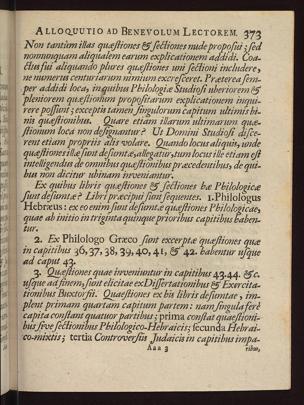 ALLOQUUTIO AD BENEVOLUM LECTOREM. 373
Non tantùm illas quæstiones & sectiones nude proposui; sed
nonnunquam aliqualem earum explicationem addidi. Coa-
ctus fui aliquando plures quæstiones uni sectioni includere,
ne numerus centuriarum nimium excresceret. Præterea sem-
per addidi loca, in quibus Philologiæ Studiosi uberiorem &
pleniorem quæstionum propositarum explicationem inqui-
rere possunt; exceptis tamen singulorum capitum ultimis bi-
nis quæstionibus. Quare etiam illarum ultimarum quæ-
stionum loca non designantur? Ut Domini Studiosi disce-
rent etiam propriis alis volare. Quando locus aliquis, unde
quæstiones illæ sunt desumtæ, allegatur, tum locus ille etiam est
intelligendus de omnibus quæstionibus præcedentibus, de qui-
bus non dicitur ubinam inveniantur.
Ex quibus libris quæstiones & sectiones hæ Philologicæ
sunt desumtæ? Libri præcipui sunt sequentes. 1. Philologus
Hebræus: ex eo enim sunt desumtæ quæstiones Philologicæ,
quæ ab initio in triginta quinque prioribus capitibus haben-
tur.
2. Ex Philologo Græco sunt excerptæ quæstiones quæ
in capitibus 36, 37, 38, 39, 40, 41, & 42. habentur usque
ad caput 43.
3. Quæstiones quæ inveniuntur in capitibus 43.44. &c.
usque ad finem, sunt elicitæ ex Dissertationibus & Exercita-
tionibus Buxtorfii. Quæstiones ex his libris desumtæ, im-
plent primam quartam capitum partem: nam singula ferè
capita constant quatuor partibus; prima constat quæstioni-
bus sive sectionibus Philologico-Hebraicis; secunda Hebrai-
co-mixtis; tertia Controversiis Judaicis in capitibus impa-
Aaa 3 ribus,